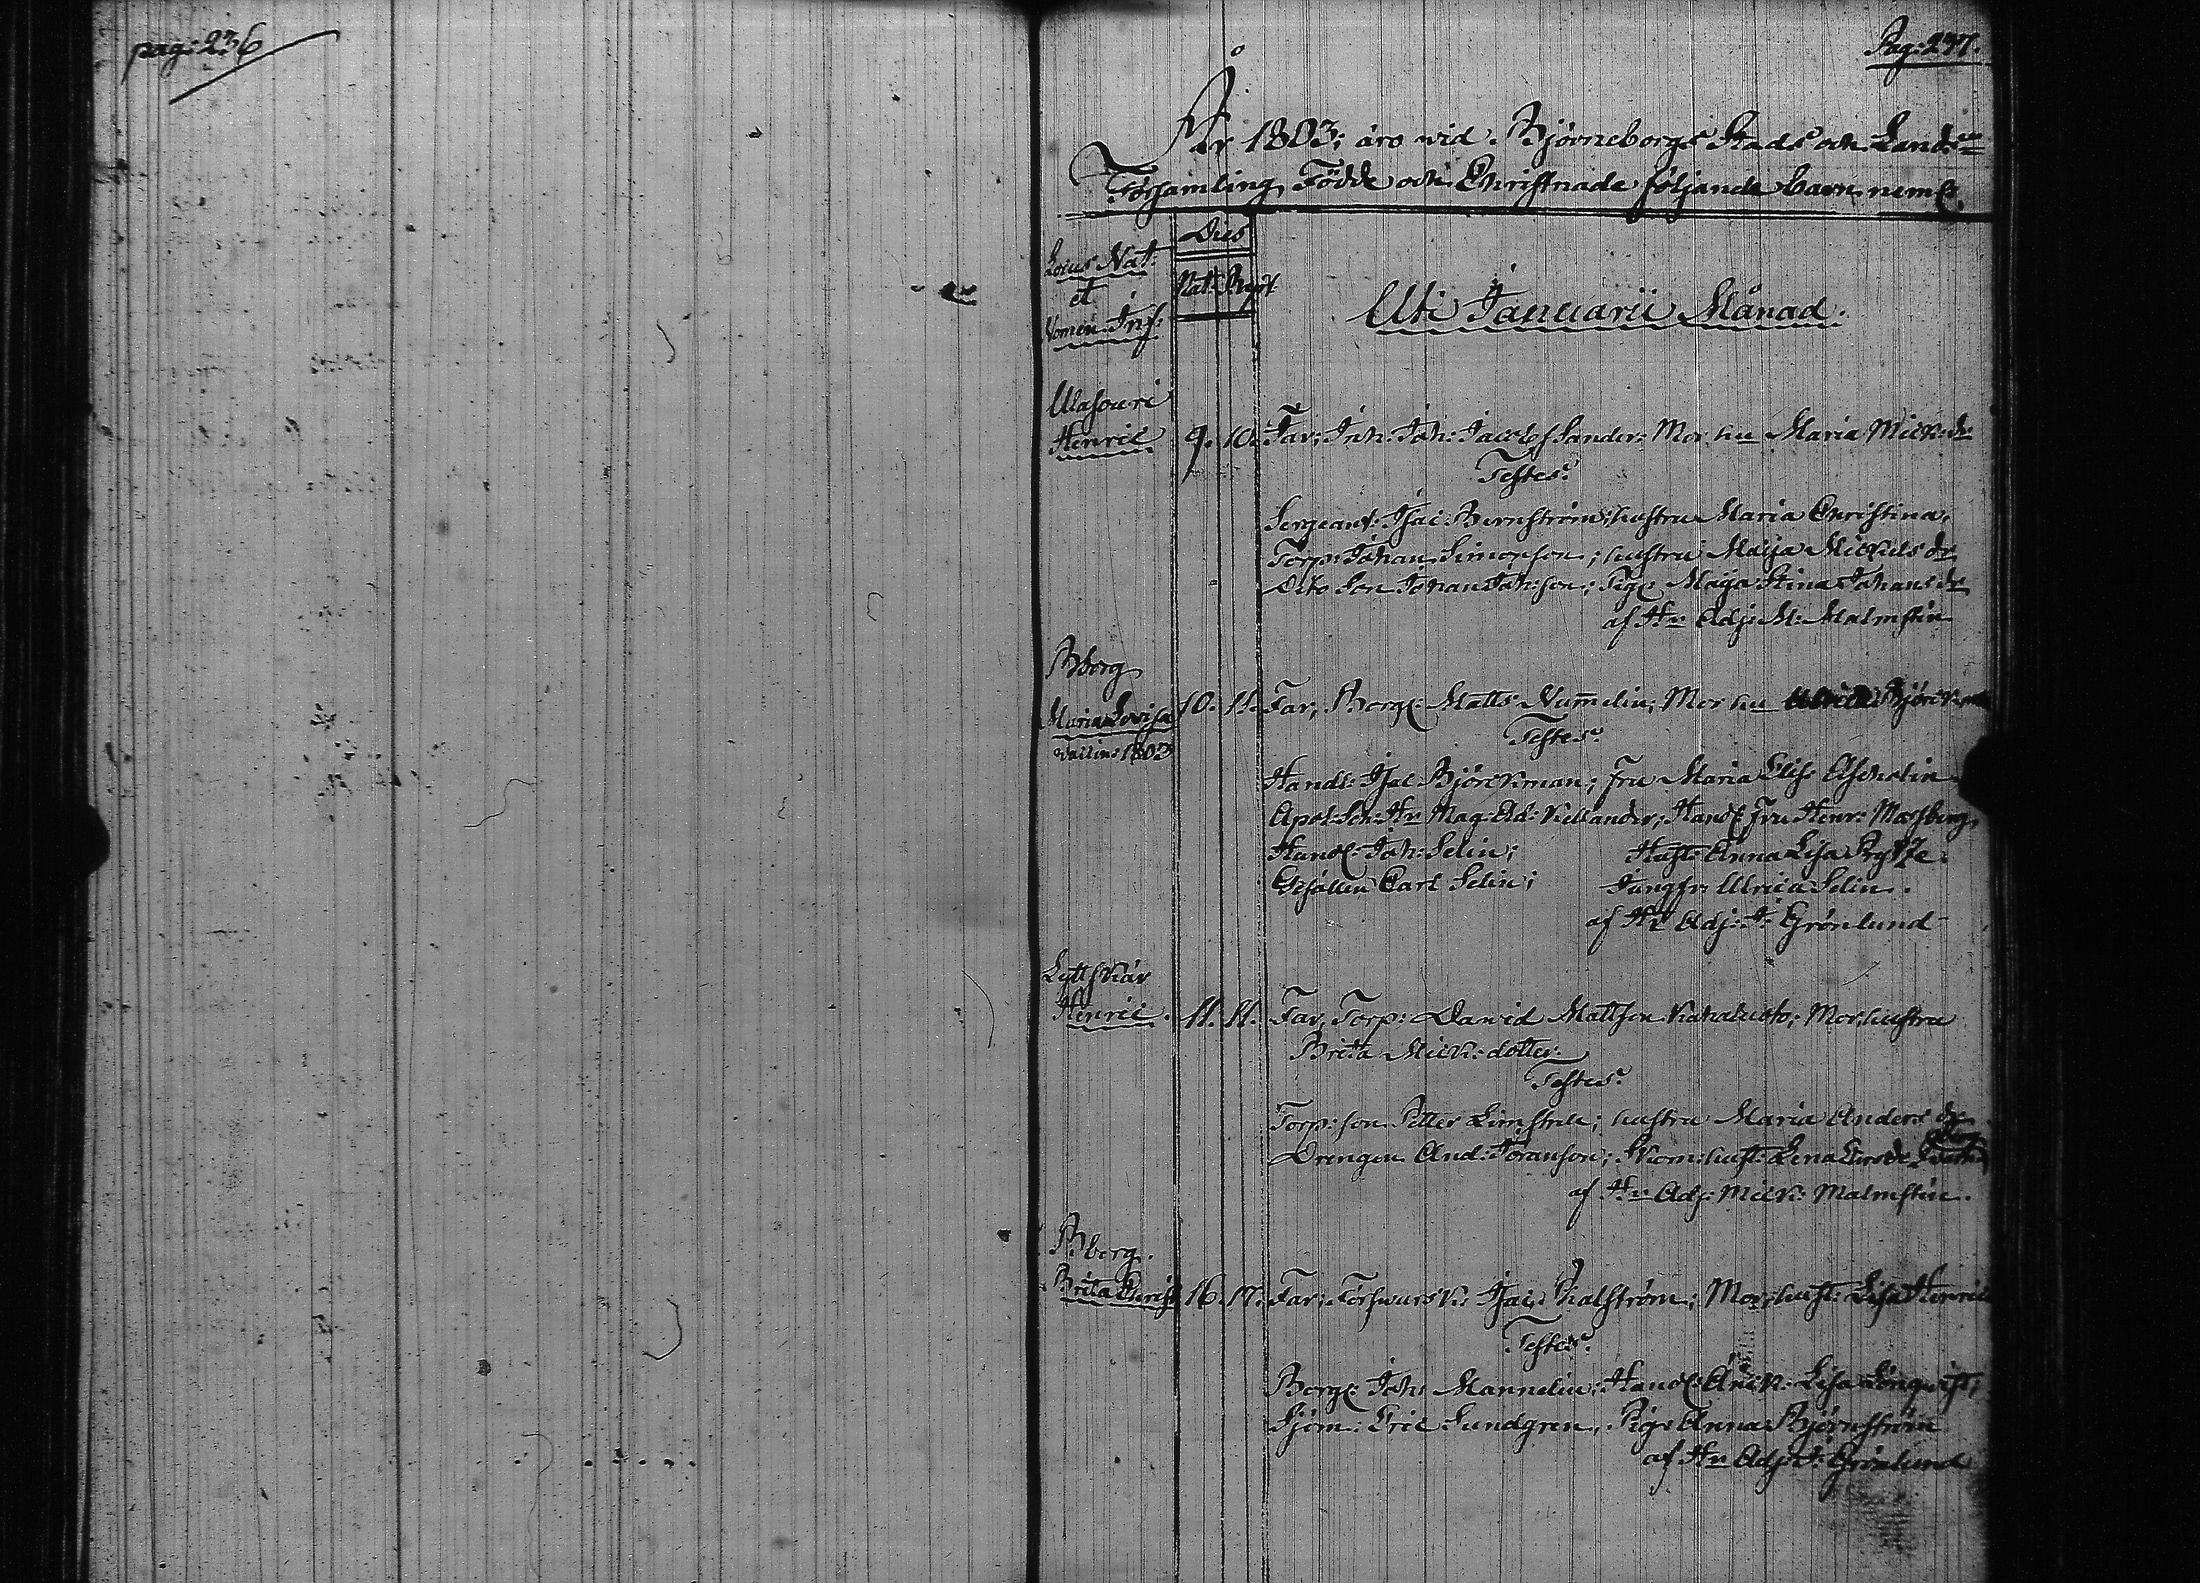 pag: 236
Pag: 237.
År 1803; äro wid Björneborgs Stads och Lands
Församling Födde och Christnade följande barn neml.
Dies
Locus Nat:
et
Nomen Inf:
Nat: Bapt
Uti Januarii Månad.
Ulasouri
Henric 9. 10. Far; Inh: Joh: Jacobss Sander: Mor hu Maria Mick: dr
Testes:
Sergeant: Isac: Bernström; hustru Maria Christina.
Torp: Johan Simonson; hustru Maija Mickels dr
Dito Son Johan Joh:son; Pig: Maija Stina Johans dr
af Hr Adj: M: Malmsten
Bborg
Maria Lovisa 10. 11. Far, Borg: Matts Nummelin; Mor hu Björckman
1803
Testes:
Handl: Isac Björckman; fru Maria Elis: Aschelin
Apol: Hr Mag: Ad: Kellander; Handl fru Henr:
Handl: Joh: Selin; Hust: Anna Lisa
Gesällen Carl Selin; Jungfr: Ulrica Selin.
af Hr Adj: J: Grönlund
Lyttskiär
Henric. 11. 11. Far, Torp: David Mattson; Mor, hustru
Brita Mick: dotter
Testes:
Torp: son Petter; hustru Maria Anders dr
Drengen And: Joranson; hust: Lena
af Hr Adj: Mick: Malmsten.
Bborg.
Brita Christ 16. 17. Far; Försvarsk: Isac; Mor, hust: Lisa Henric
Testes:
Borg: Joh: Mannelin; Handl: Lisa Lönqvist;
Sjöm: Eric Sundgren, Pig: Anna Björnström
af Hr Adj: J: Grönlund